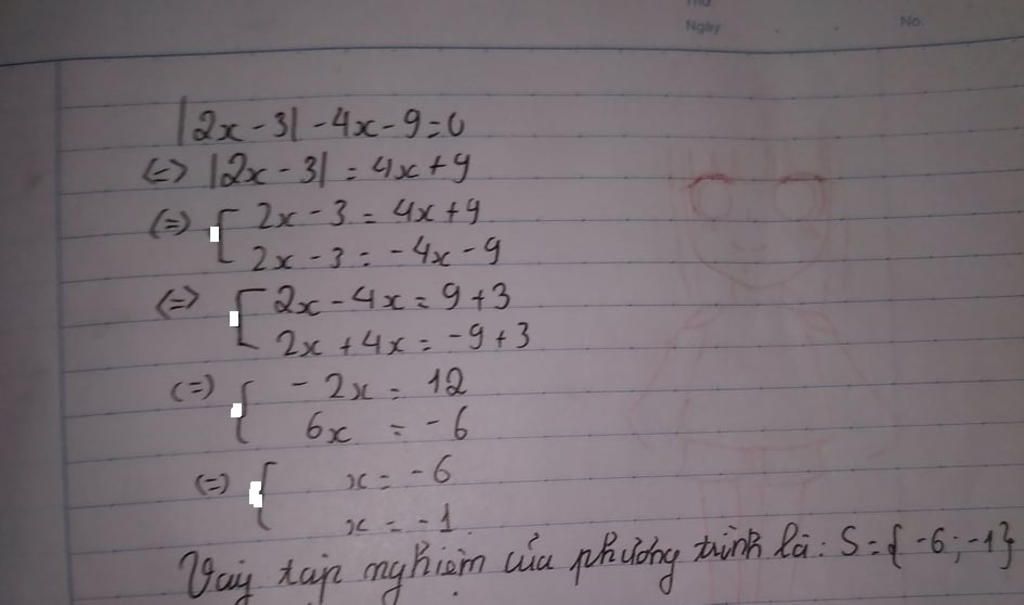 Thứ
Ngày No.
|2x - 3| - 4x - 9 = 0
(=) |2x - 3| = 4x + 9
(=) [ 2x - 3 = 4x + 9
2x - 3 = - 4x - 9
(=) [ 2x - 4x = 9 + 3
2x + 4x = - 9 + 3
(=) [ - 2x = 12
6x = - 6
(=) [ x = - 6
x = - 1
Vậy tập nghiệm của phương trình là: S = { -6 ; -1}